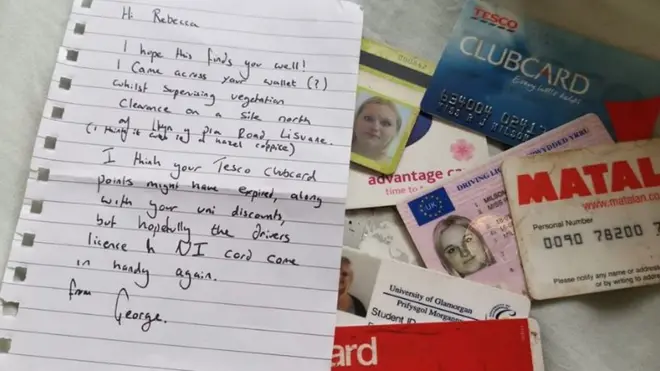 Hi Rebecca
I hope this finds you well!
I came across your wallet (?)
whilst supervising vegetation
clearance on a site north
of Llwyn y pia Road, Lisvane.
(I think it was in a hazel coppice)
I think your Tesco clubcard
points might have expired, along
with your uni discounts,
but hopefully the drivers
licence & NI card come
in handy again.
from
George.
TESCO
CLUBCARD
Every little helps
634004 02417
advantage ca
time to
DRIVING LICENCE
UK
MISS
MATALAN
www.matalan.co
Personal Number
0090 78200 7
Please notify any name or address
or by writing to
University of Glamorgan
Prifysgol Morgannwg
Student ID
ard